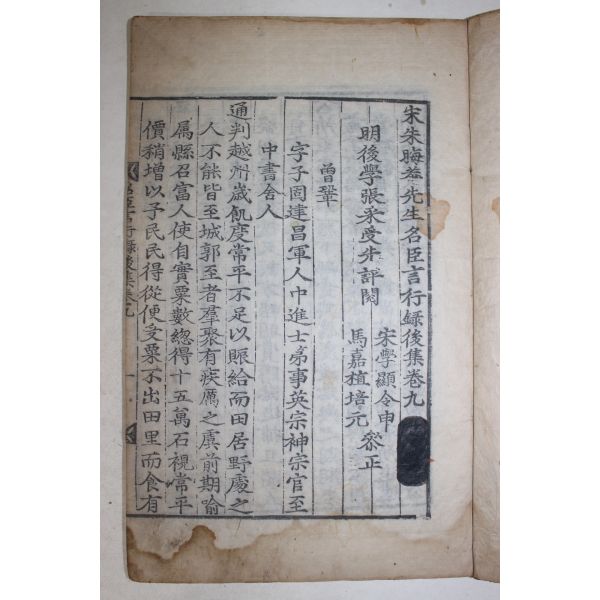 宋朱晦菴先生名臣言行錄後集卷九
明後學張采受先評閱
宋學顯令申
馬嘉植培元
叅正
曾鞏
字子固建昌軍人中進士弟事英宗神宗官至
中書舍人
通判越州歲飢度常平不足以賑給而田居野處之
人不能皆至城郭至者羣聚有疾癘之虞前期喻
属縣召富人使自實粟數緫得十五萬石視常平
價稍增以予民民得從便受粟不出田里而食有
名臣言行錄後集卷九
一